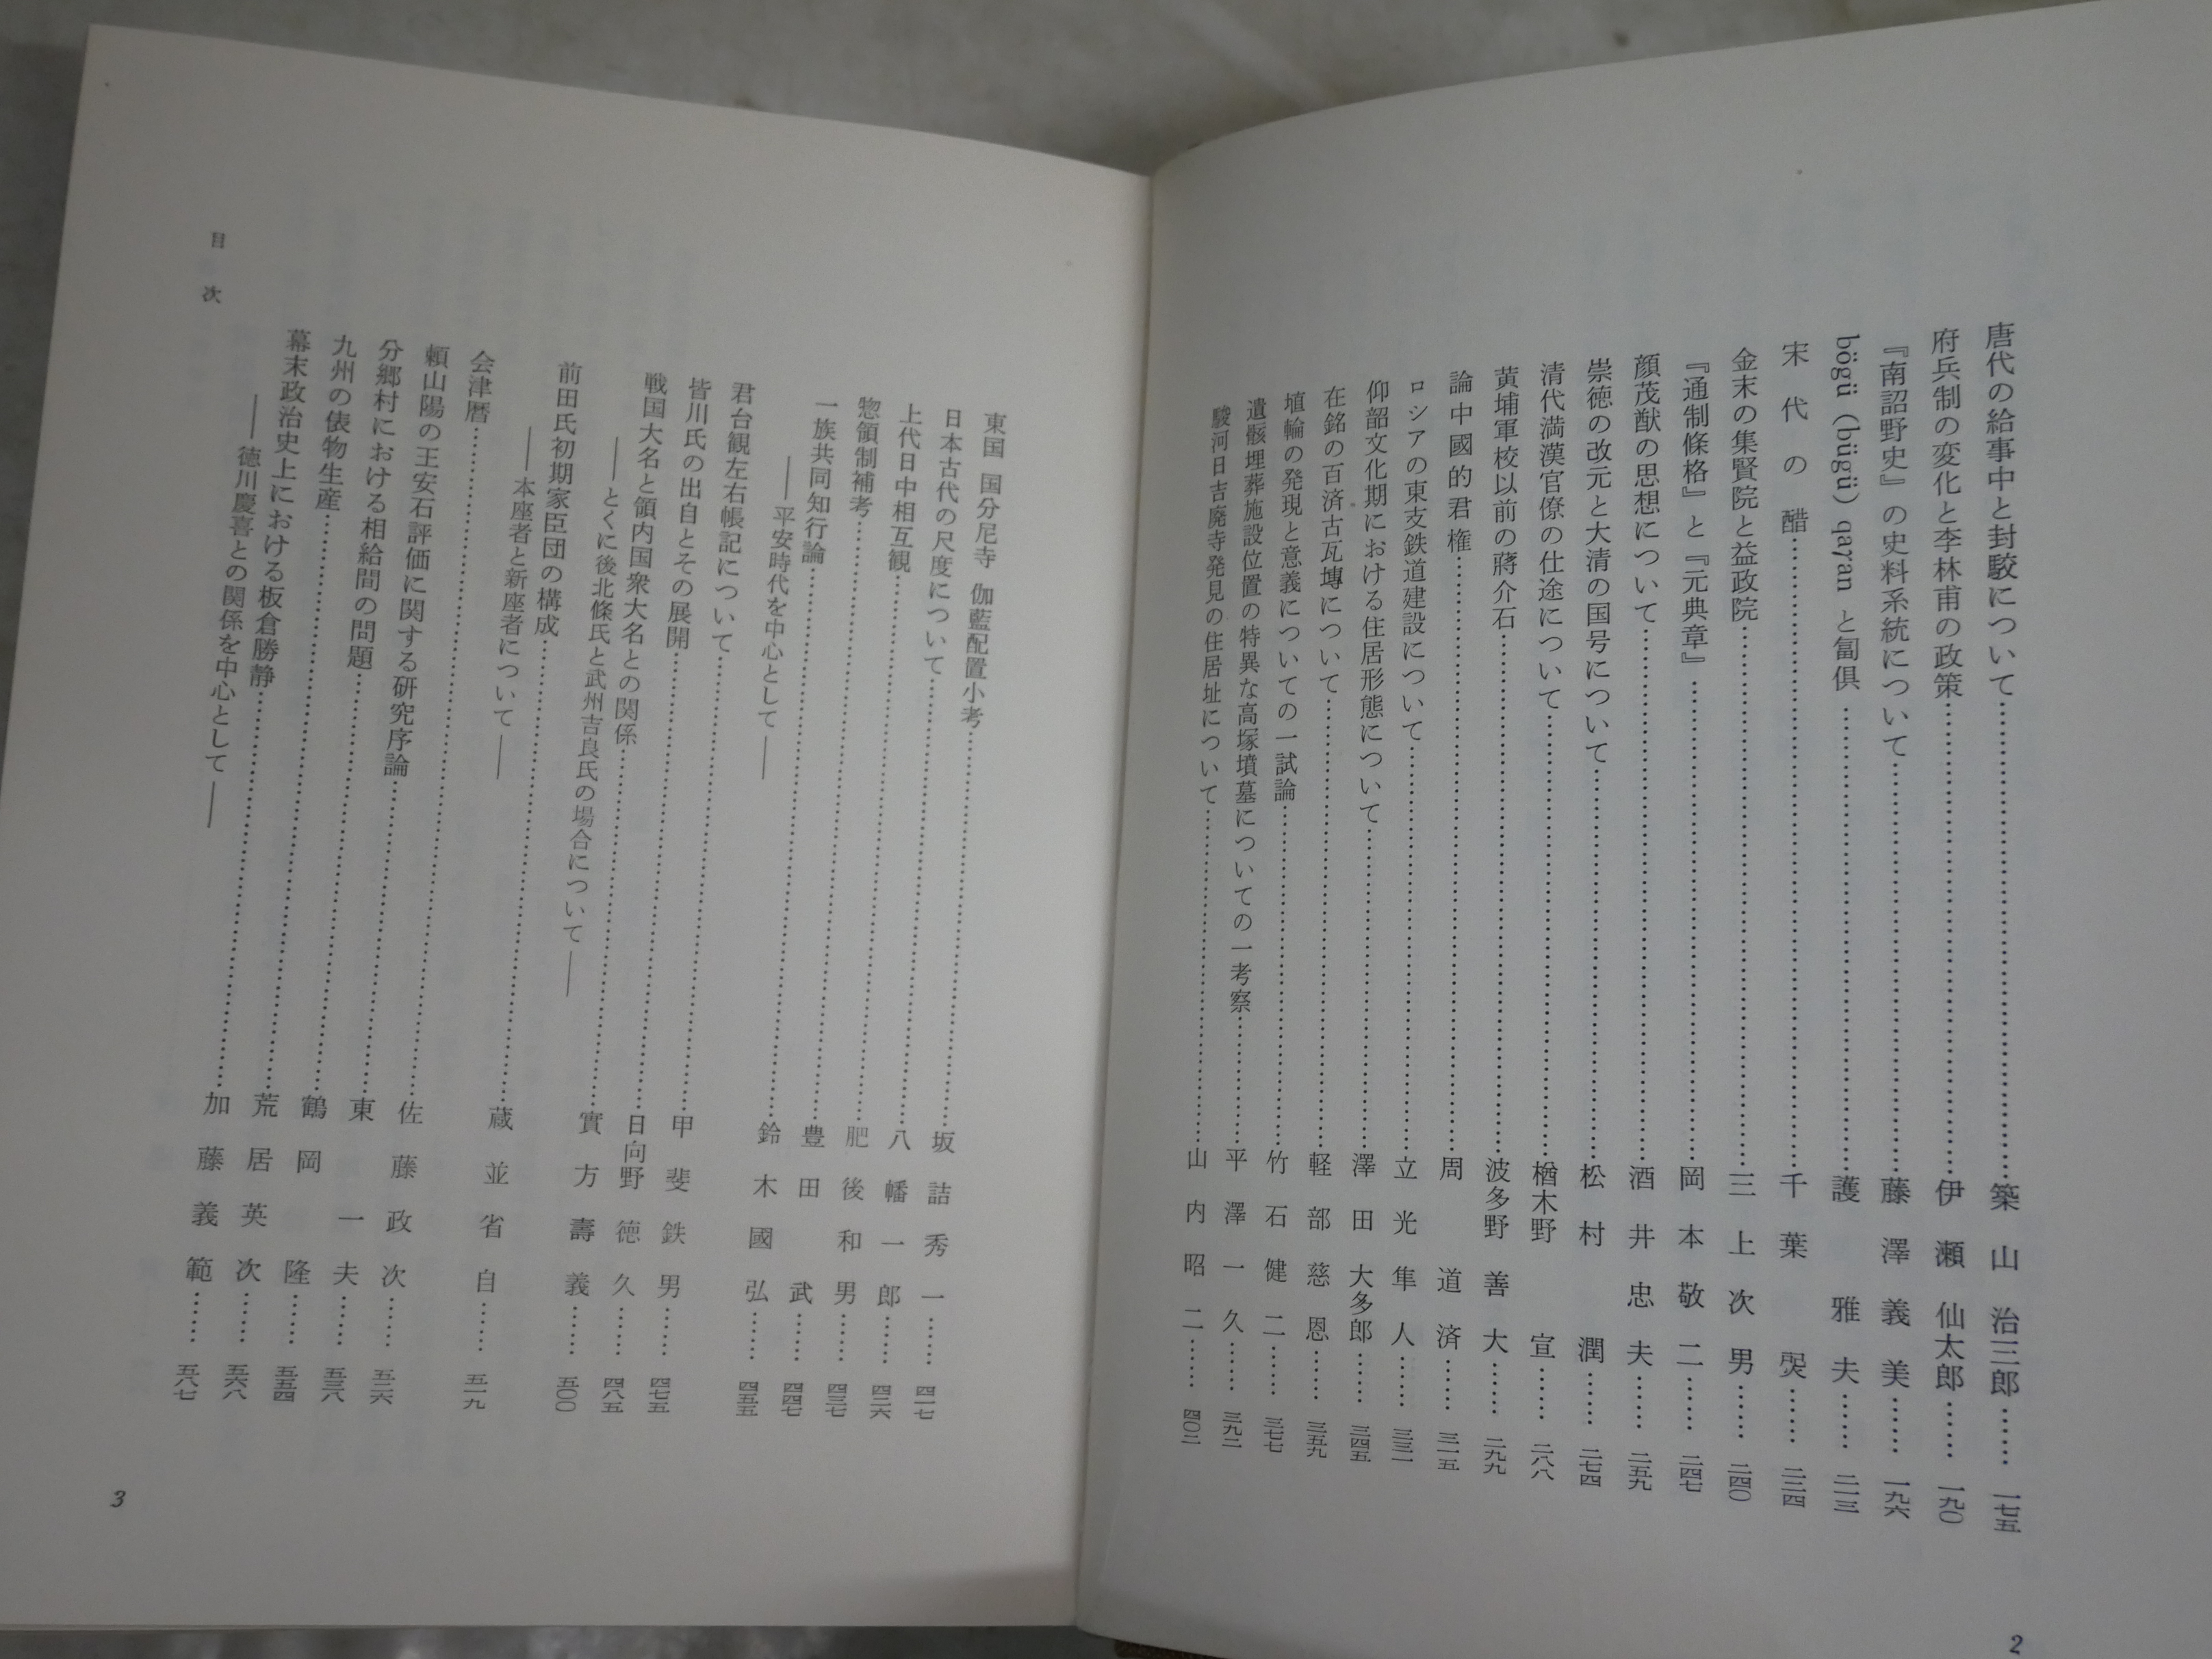 唐代の給事中と封駮について……築山治三郎……一七五
府兵制の変化と李林甫の政策……伊瀬仙太郎……一九〇
『南詔野史』の史料系統について……藤澤義美……一九六
bögü (bügü) qaγan と匐俱……護雅夫……二一三
宋代の醋……千葉焈……二二四
金末の集賢院と益政院……三上次男……二四〇
『通制條格』と『元典章』……岡本敬二……二四七
顔茂猷の思想について……酒井忠夫……二五九
崇徳の改元と大清の国号について……松村潤……二七四
清代満漢官僚の仕途について……楢木野宣……二八八
黄埔軍校以前の蔣介石……波多野善大……二九九
論中國的君権……周道済……三一五
ロシアの東支鉄道建設について……立光隼人……三三一
仰韶文化期における住居形態について……澤田大多郎……三四五
在銘の百済古瓦塼について……軽部慈恩……三五九
埴輪の発現と意義についての一試論……竹石健二……三七七
遺骸埋葬施設位置の特異な高塚墳墓についての一考察……平澤一久……三九二
駿河日吉廃寺発見の住居址について……山内昭二……四〇二
2
東国 国分尼寺 伽藍配置小考……坂詰秀一……四一七
日本古代の尺度について……八幡一郎……四二六
上代日中相互観……肥後和男……四三七
惣領制補考……豊田武……四四七
一族共同知行論……鈴木國弘……四五五
――平安時代を中心として――
君台観左右帳記について……甲斐鉄男……四七五
皆川氏の出自とその展開……日向野徳久……四八五
戦国大名と領内国衆大名との関係……實方壽義……五〇〇
――とくに後北條氏と武州吉良氏の場合について――
前田氏初期家臣団の構成……蔵並省自……五一九
――本座者と新座者について――
会津暦……佐藤政次……五二六
頼山陽の王安石評価に関する研究序論……東一夫……五三八
分郷村における相給間の問題……鶴岡隆……五五四
九州の俵物生産……荒居英次……五六八
幕末政治史上における板倉勝静……加藤義範……五八七
――徳川慶喜との関係を中心として――
目次
3